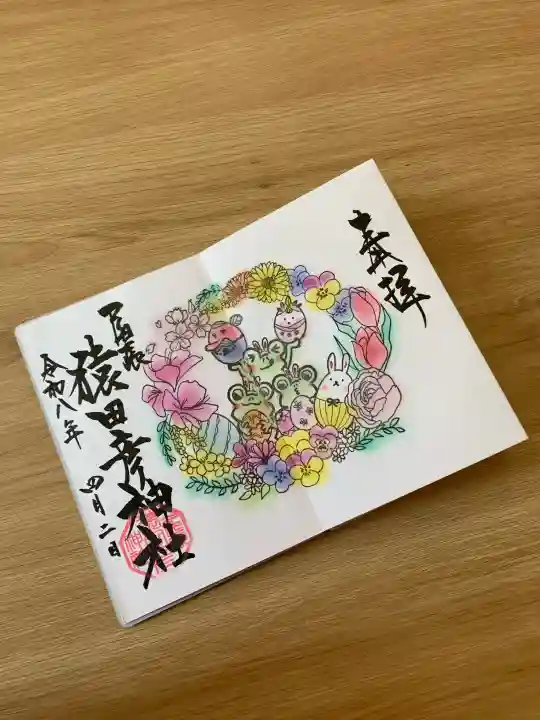 奉拝
尾張
猿田彦神社
令和八年
四月二日